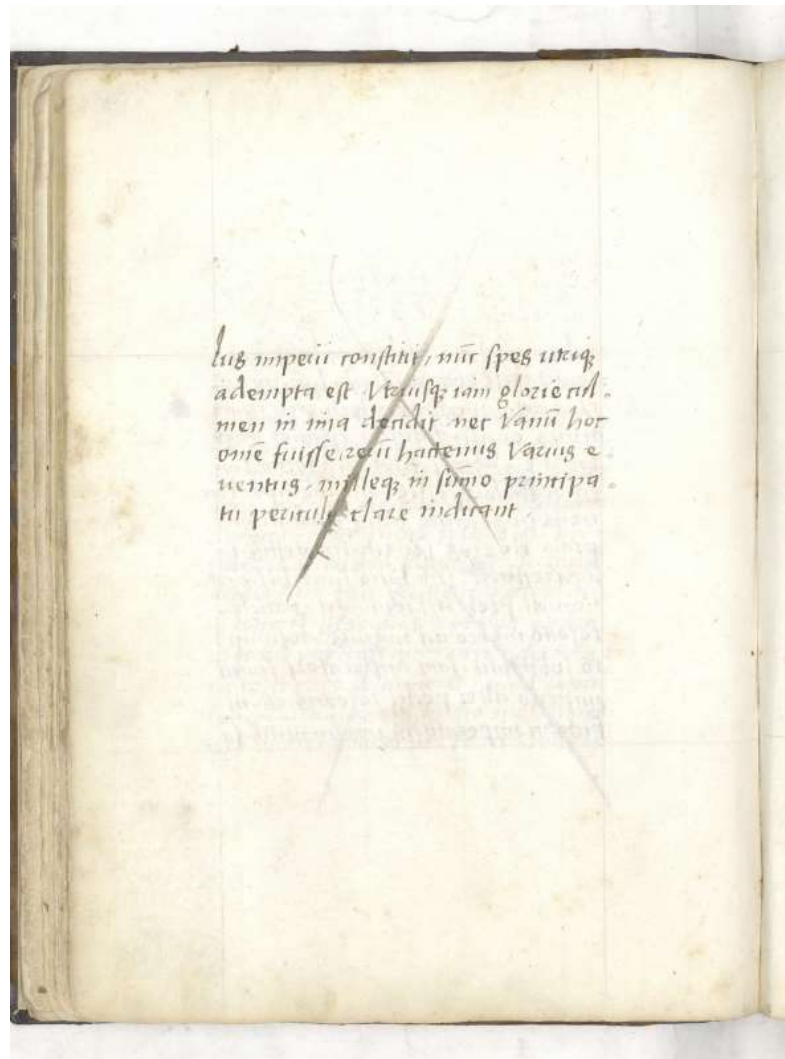 lus imperii constitit, nūc spes utriq;
adempta est Vtriusq; iam glorie cul-
men in ima decidit nec Vanū hoc
omē fuisse, rerū hactenus Varius e
uentus, milleq; in sūmo principa-
tu pericula clare indicant.